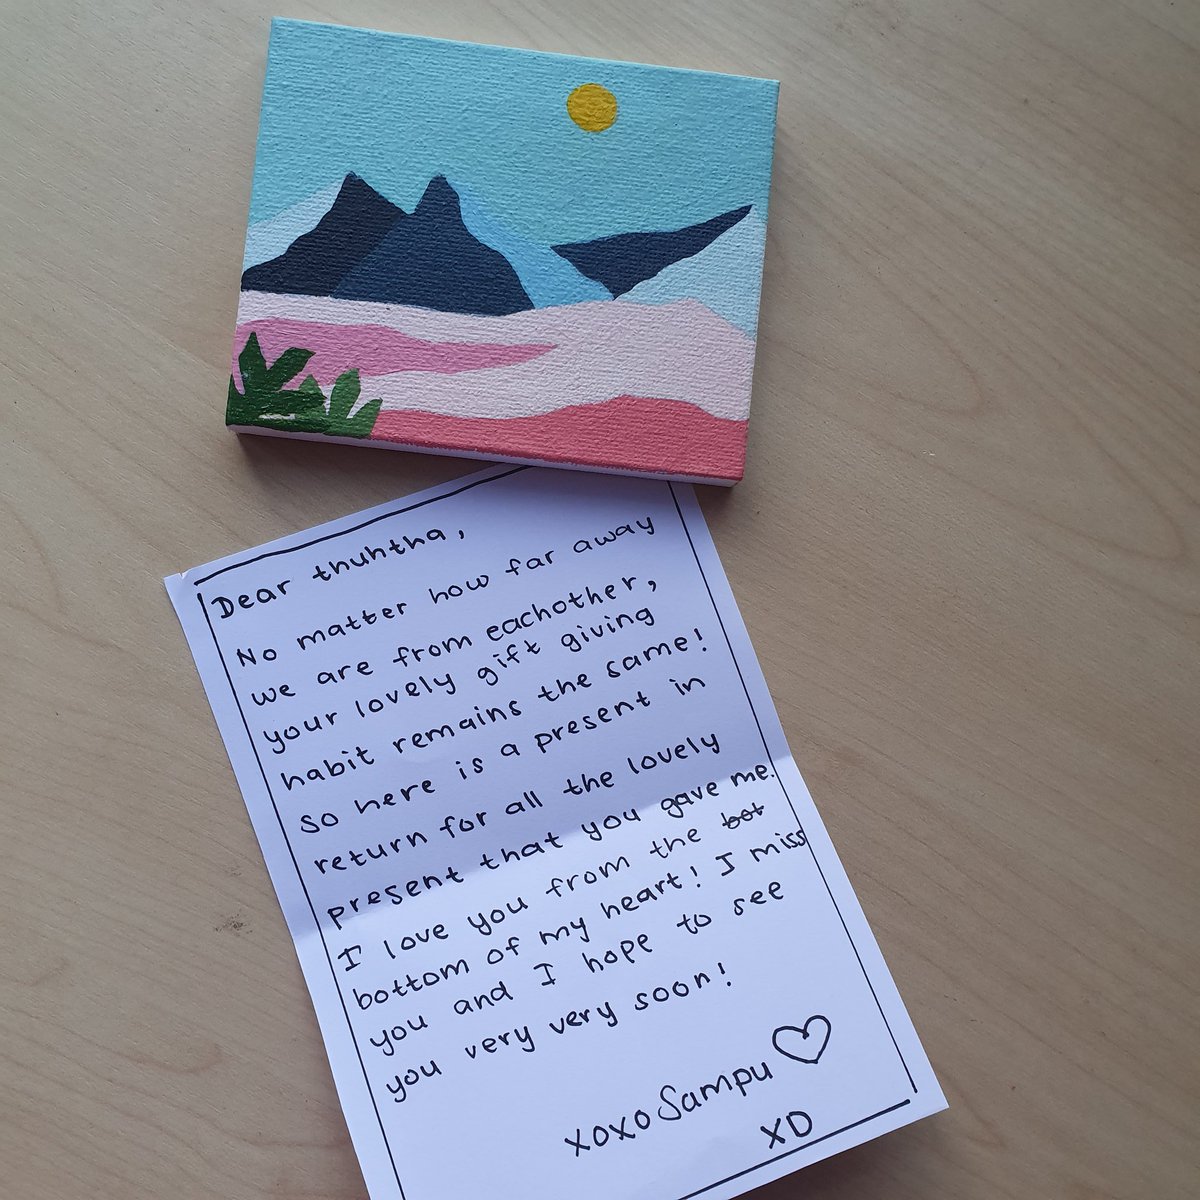 Dear thuhtha,
No matter how far away
we are from eachother,
your lovely gift giving
habit remains the same!
So here is a present in
return for all the lovely
present that you gave me.
I love you from the bot
bottom of my heart! I miss
you and I hope to see
you very very soon!
xoxo Sampu ♡
XD